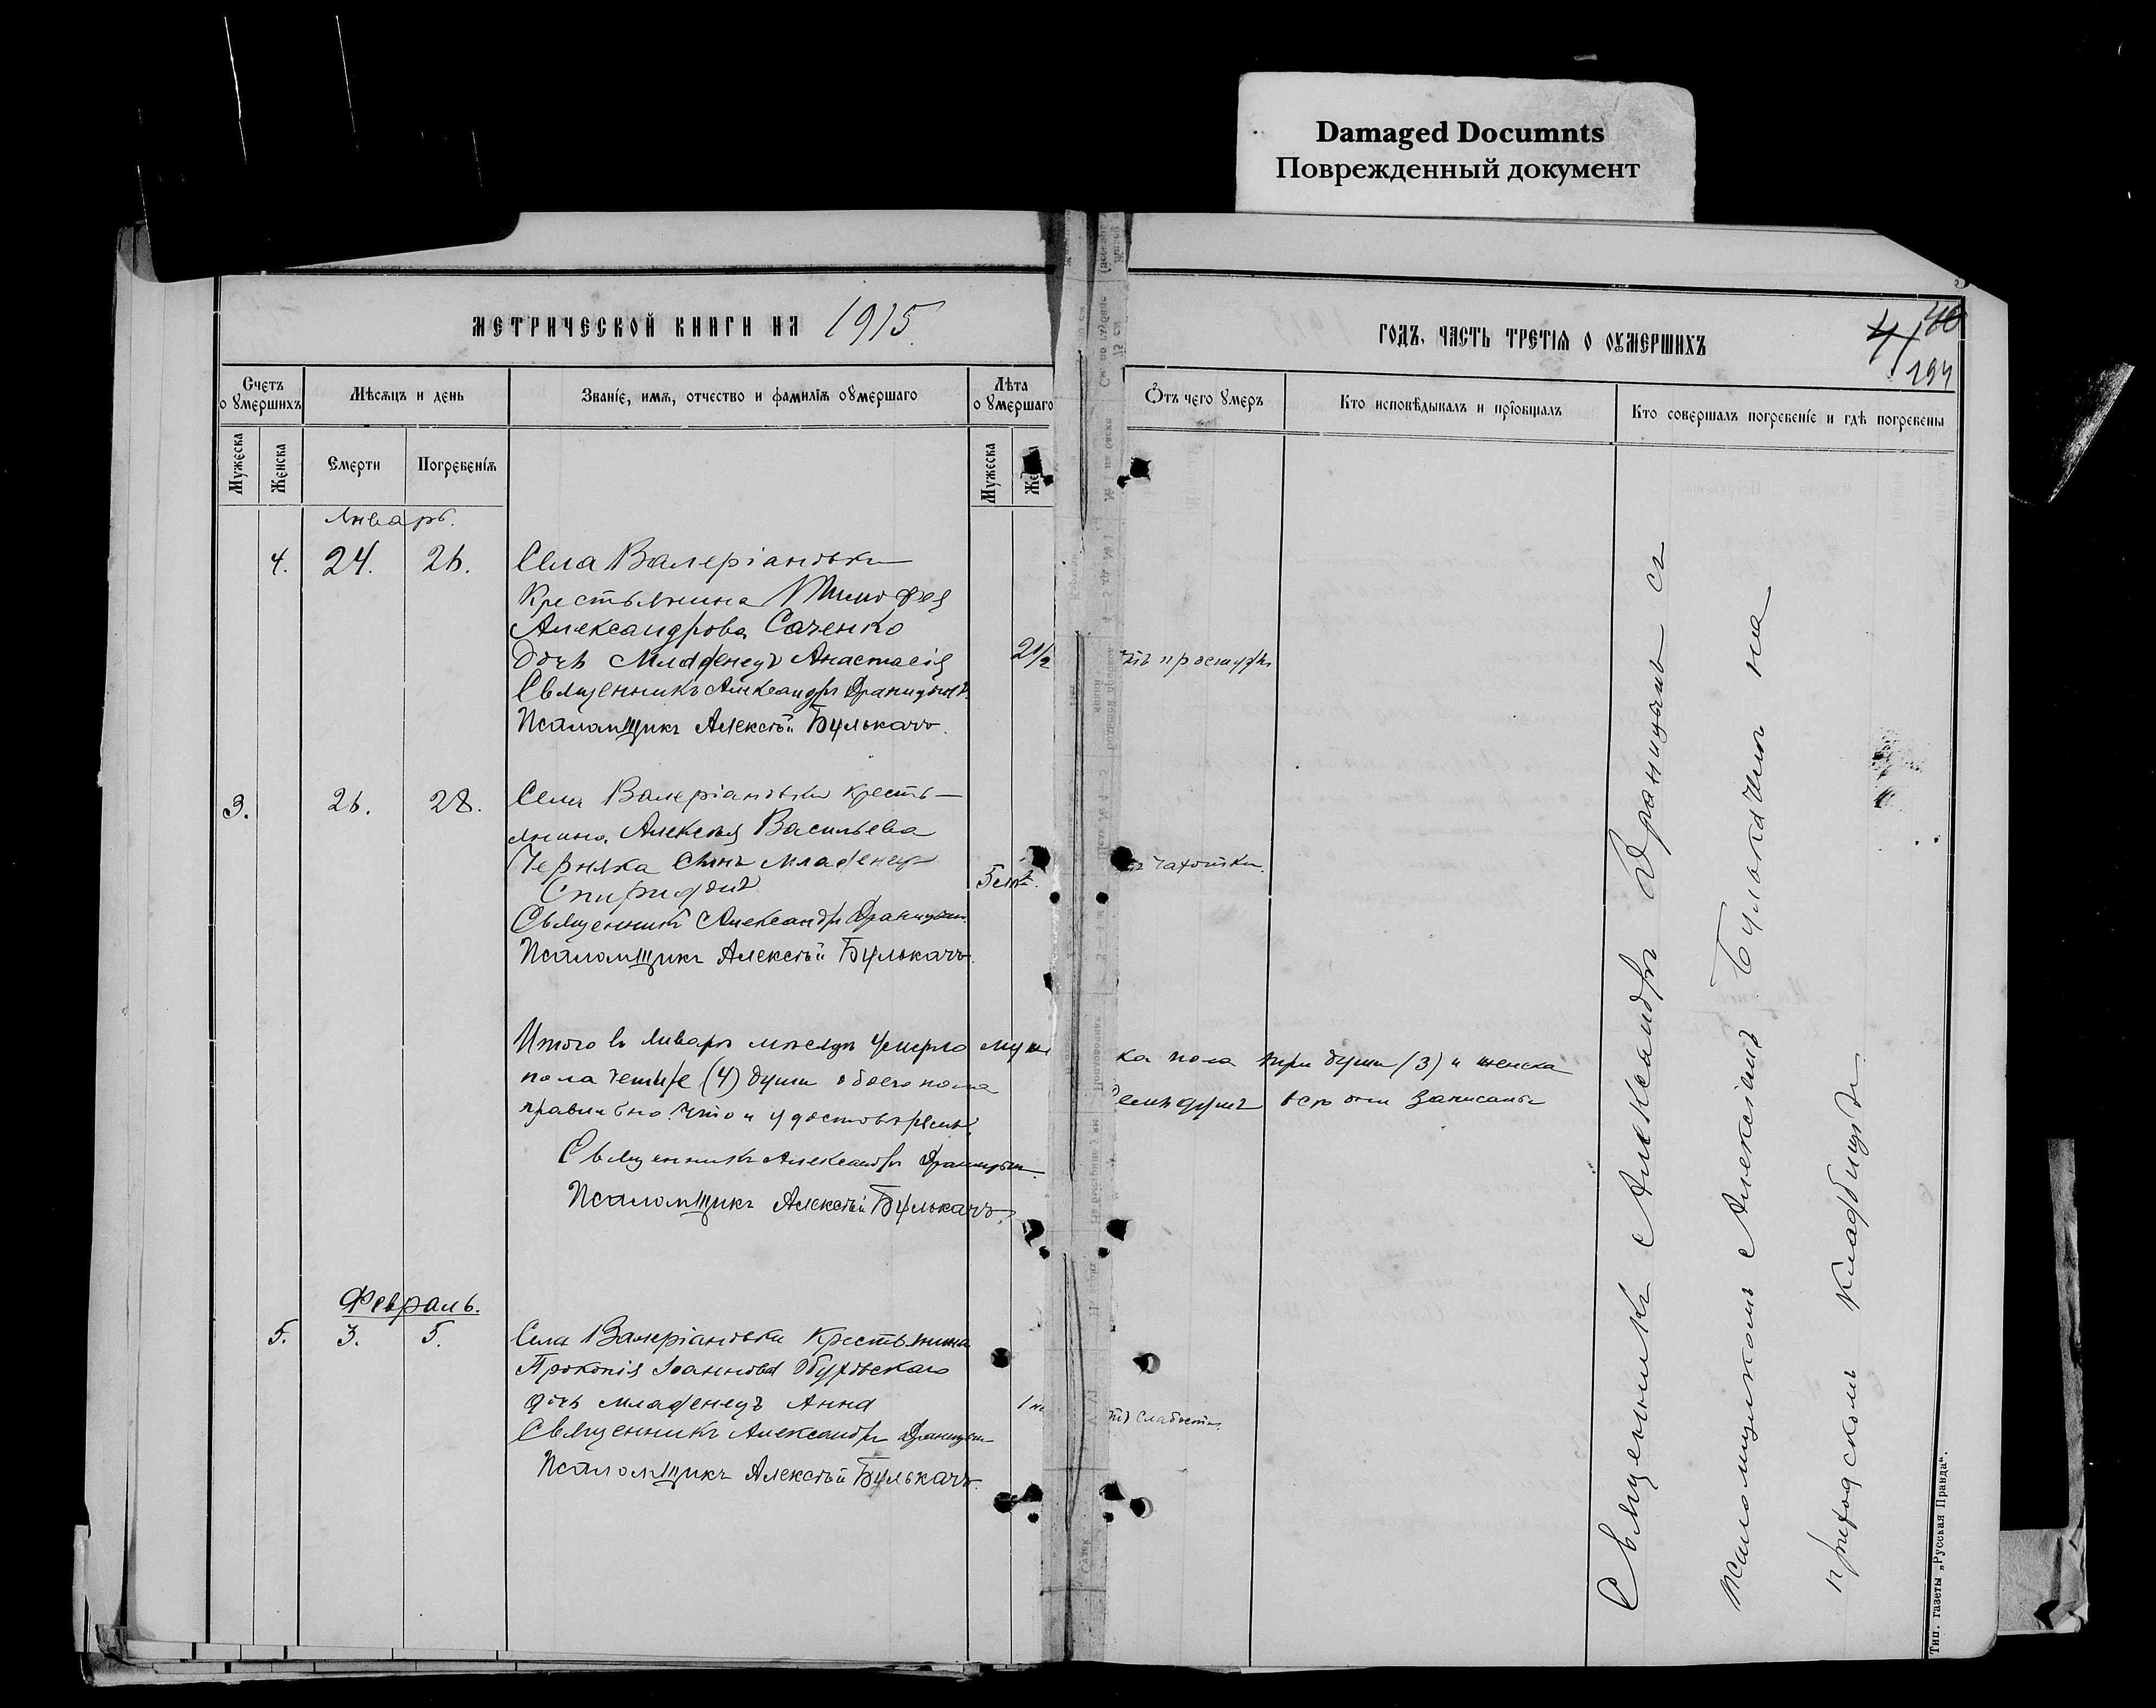 Damaged Documnts
Поврежденный документ
МЕТРИЧЕСКОЙ КНИГИ НА 1915.
ГОДЪ, ЧАСТЬ ТРЕТІЯ О ОУМЕРШИХЪ
41 40
194
Счетъ о умершихъ
Мѣсяцъ и день
Званіе, имя, отчество и фамилія оумершаго
Лѣта о умершаго
Отъ чего умеръ
Кто исповѣдывалъ и пріобщалъ
Кто совершалъ погребеніе и гдѣ погребены
Мужеска
Женска
Смерти
Погребенія
Мужеска
Же
Январь.
4. 24. 26. Села Валеріановки
Крестьянина Тимофея
Александрова Саченко
дочь младенецъ Анастасія 2 1/2 простуды
Священникъ Александръ Драницынъ.
Псаломщикъ Алексѣй Булькачъ.
3. 26. 28. Села Валеріановки кресть-
янина Алексѣя Васильева
Черняка сынъ младенецъ
Спиридонъ 5 чахотки.
Священникъ Александръ Драницынъ.
Псаломщикъ Алексѣй Булькачъ.
Итого въ Январѣ мѣсяцѣ умерло муже ка пола три души (3) и женска
пола четыре (4) души обоего пола Семь душъ всѣ они записаны
правильно что и удостовѣряемъ.
Священникъ Александръ Драницынъ.
Псаломщикъ Алексѣй Булькачъ.
Февраль.
5. 3. 5. Села Валеріановки Крестьянина
Прокопія Іоаннова Обуховскаго
дочь младенецъ Анна 1 слабости.
Священникъ Александръ Драницынъ
Псаломщикъ Алексѣй Булькачъ.
Священникъ Александръ Драницынъ съ
псаломщикомъ Алексѣемъ Булькачемъ на
приходскомъ кладбищѣ
Тип. газеты „Русская Правда“.